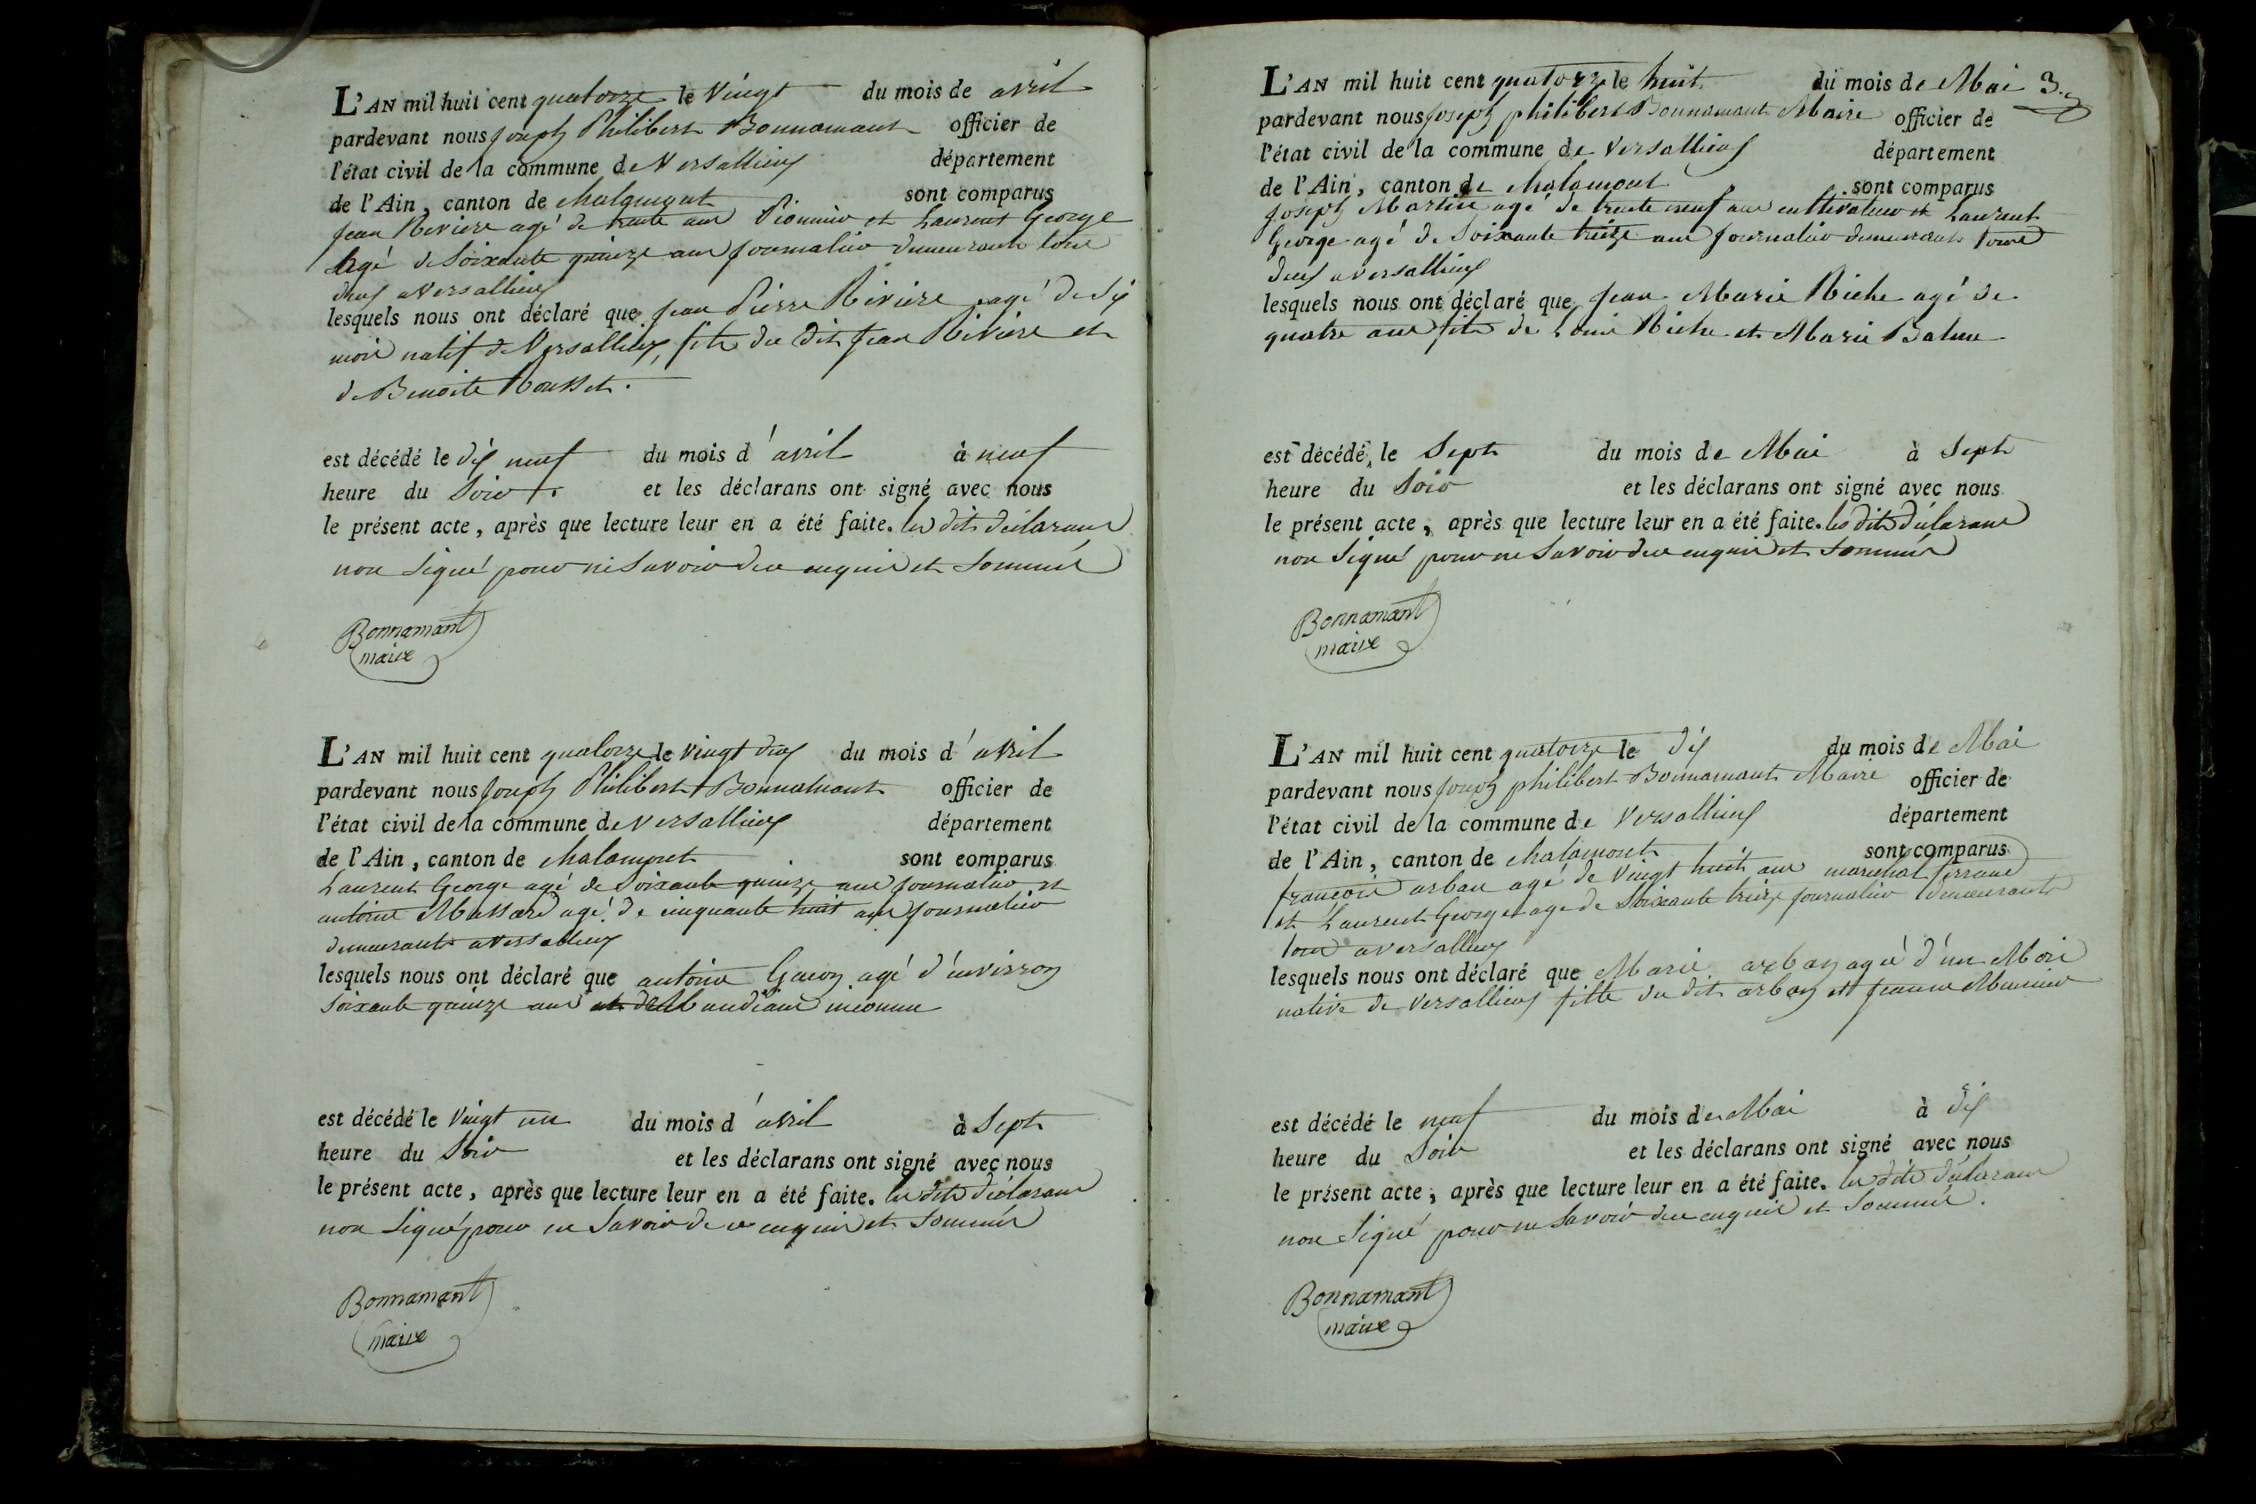 L'AN mil huit cent quatorze le vingt du mois de avril
pardevant nous Joseph Philibert Bonnamant officier de
l'état civil de la commune de Versallieux département
de l'Ain, canton de chalamont sont comparus
Jean Riviere agé de trente ans Pionnier et Laurent George
agé de Soixante quinze ans journalier demeurants tous
deux a Versallieux
lesquels nous ont déclaré que Jean Pierre Riviere agé de dix
mois natif de Versallieux, fils du dit Jean Riviere et
de Benoite Rousset.
est décédé le dix neuf du mois d'avril à neuf
heure du Soir. et les déclarans ont signé avec nous
le présent acte, après que lecture leur en a été faite. les dits déclarans
non Signé pour ne Savoir de ce enquis et Sommés
Bonnamant
maire
L'AN mil huit cent quatorze le vingt deux du mois d'avril
pardevant nous Joseph Philibert Bonnamant officier de
l'état civil de la commune de Versallieux département
de l'Ain, canton de chalamont sont comparus
Laurent George agé de Soixante quinze ans journalier et
antoine Massard agé de cinquante huit ans journalier
demeurants a versallieux
lesquels nous ont déclaré que antoine agé d'environ
Soixante quinze ans Mandiant inconnu
est décédé le Vingt un du mois d'avril à Sept
heure du Soir et les déclarans ont signé avec nous
le présent acte, après que lecture leur en a été faite. les dits déclarans
non Signé pour ne Savoir de ce enquis et Sommés
Bonnamant
maire
L'AN mil huit cent quatorze le huit du mois de Mai 3.
pardevant nous Joseph philibert Bonnamant Maire officier de
l'état civil de la commune de Versallieux département
de l'Ain, canton de chalamont sont comparus
Joseph Martin agé de trente neuf ans cultivateur et Laurent
George agé de Soixante treize ans journalier demeurants tous
deux a versallieux
lesquels nous ont déclaré que Jean Marie Riche agé de
quatre ans fils de Louis Riche et Marie Balme
est décédé, le Sept du mois de Mai à Sept
heure du Soir et les déclarans ont signé avec nous
le présent acte, après que lecture leur en a été faite. les dits déclarans
non Signé pour ne Savoir de ce enquis et Sommés
Bonnamant
maire
L'AN mil huit cent quatorze le dix du mois de Mai
pardevant nous Joseph philibert Bonnamant Maire officier de
l'état civil de la commune de Versallieux département
de l'Ain, canton de chalamont sont comparus
francois arban agé de Vingt huit ans marechal ferrant
et Laurent George agé de Soixante treize journalier demeurants
tous a versallieux
lesquels nous ont déclaré que Marie arban agé d'un Mois
native de Versallieux fille du dit arban et jeanne Meunier
est décédé le neuf du mois de Mai à dix
heure du Soir et les déclarans ont signé avec nous
le présent acte, après que lecture leur en a été faite. les dits déclarans
non Signé pour ne Savoir de ce enquis et Sommés.
Bonnamant
maire